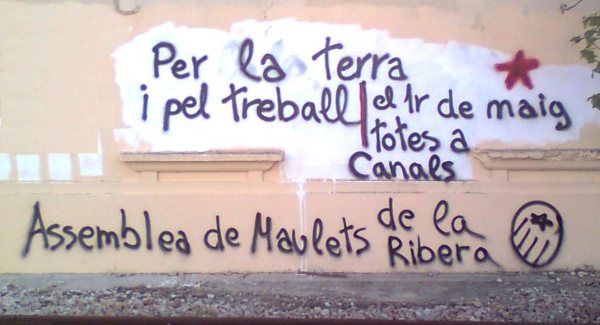 Per la terra
i pel treball
el 1r de maig
totes a
Canals
Assemblea de Maulets de la
Ribera